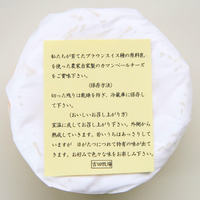 私たちが育てたブラウンスイス種の原料乳
を使った農家自家製のカマンベールチーズ
をご賞味下さい。
(保存方法)
切った残りは乾燥を防ぎ、冷蔵庫に保存し
て下さい。
(おいしいお召し上がり方)
室温に戻してお召し上がり下さい。外側から
熟成していきます。若いうちはあっさりして
いますが、日がたつにつれて特有の味が出て
きます。お好みで色々な味をお楽しみ下さい。
吉田牧場